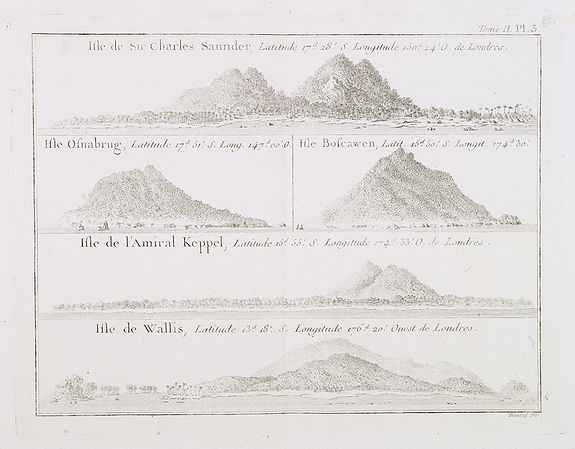 Tome II. Pl. 3.
Isle de Sir Charles Saunder, Latitude 17.d 28'. S. Longitude 150.d 24'. O. de Londres.
Isle Osnabrug, Latitude 17.d 51'. S. Long. 147.d 00'. O.
Isle Boscawen, Latit. 15.d 50'. S. Longit. 174.d 30'.
Isle de l'Amiral Keppel, Latitude 15.d 55'. S. Longitude 174.d 33'. O. de Londres.
Isle de Wallis, Latitude 13.d 18'. S. Longitude 176.d 20'. Ouest de Londres.
Benard Dir.